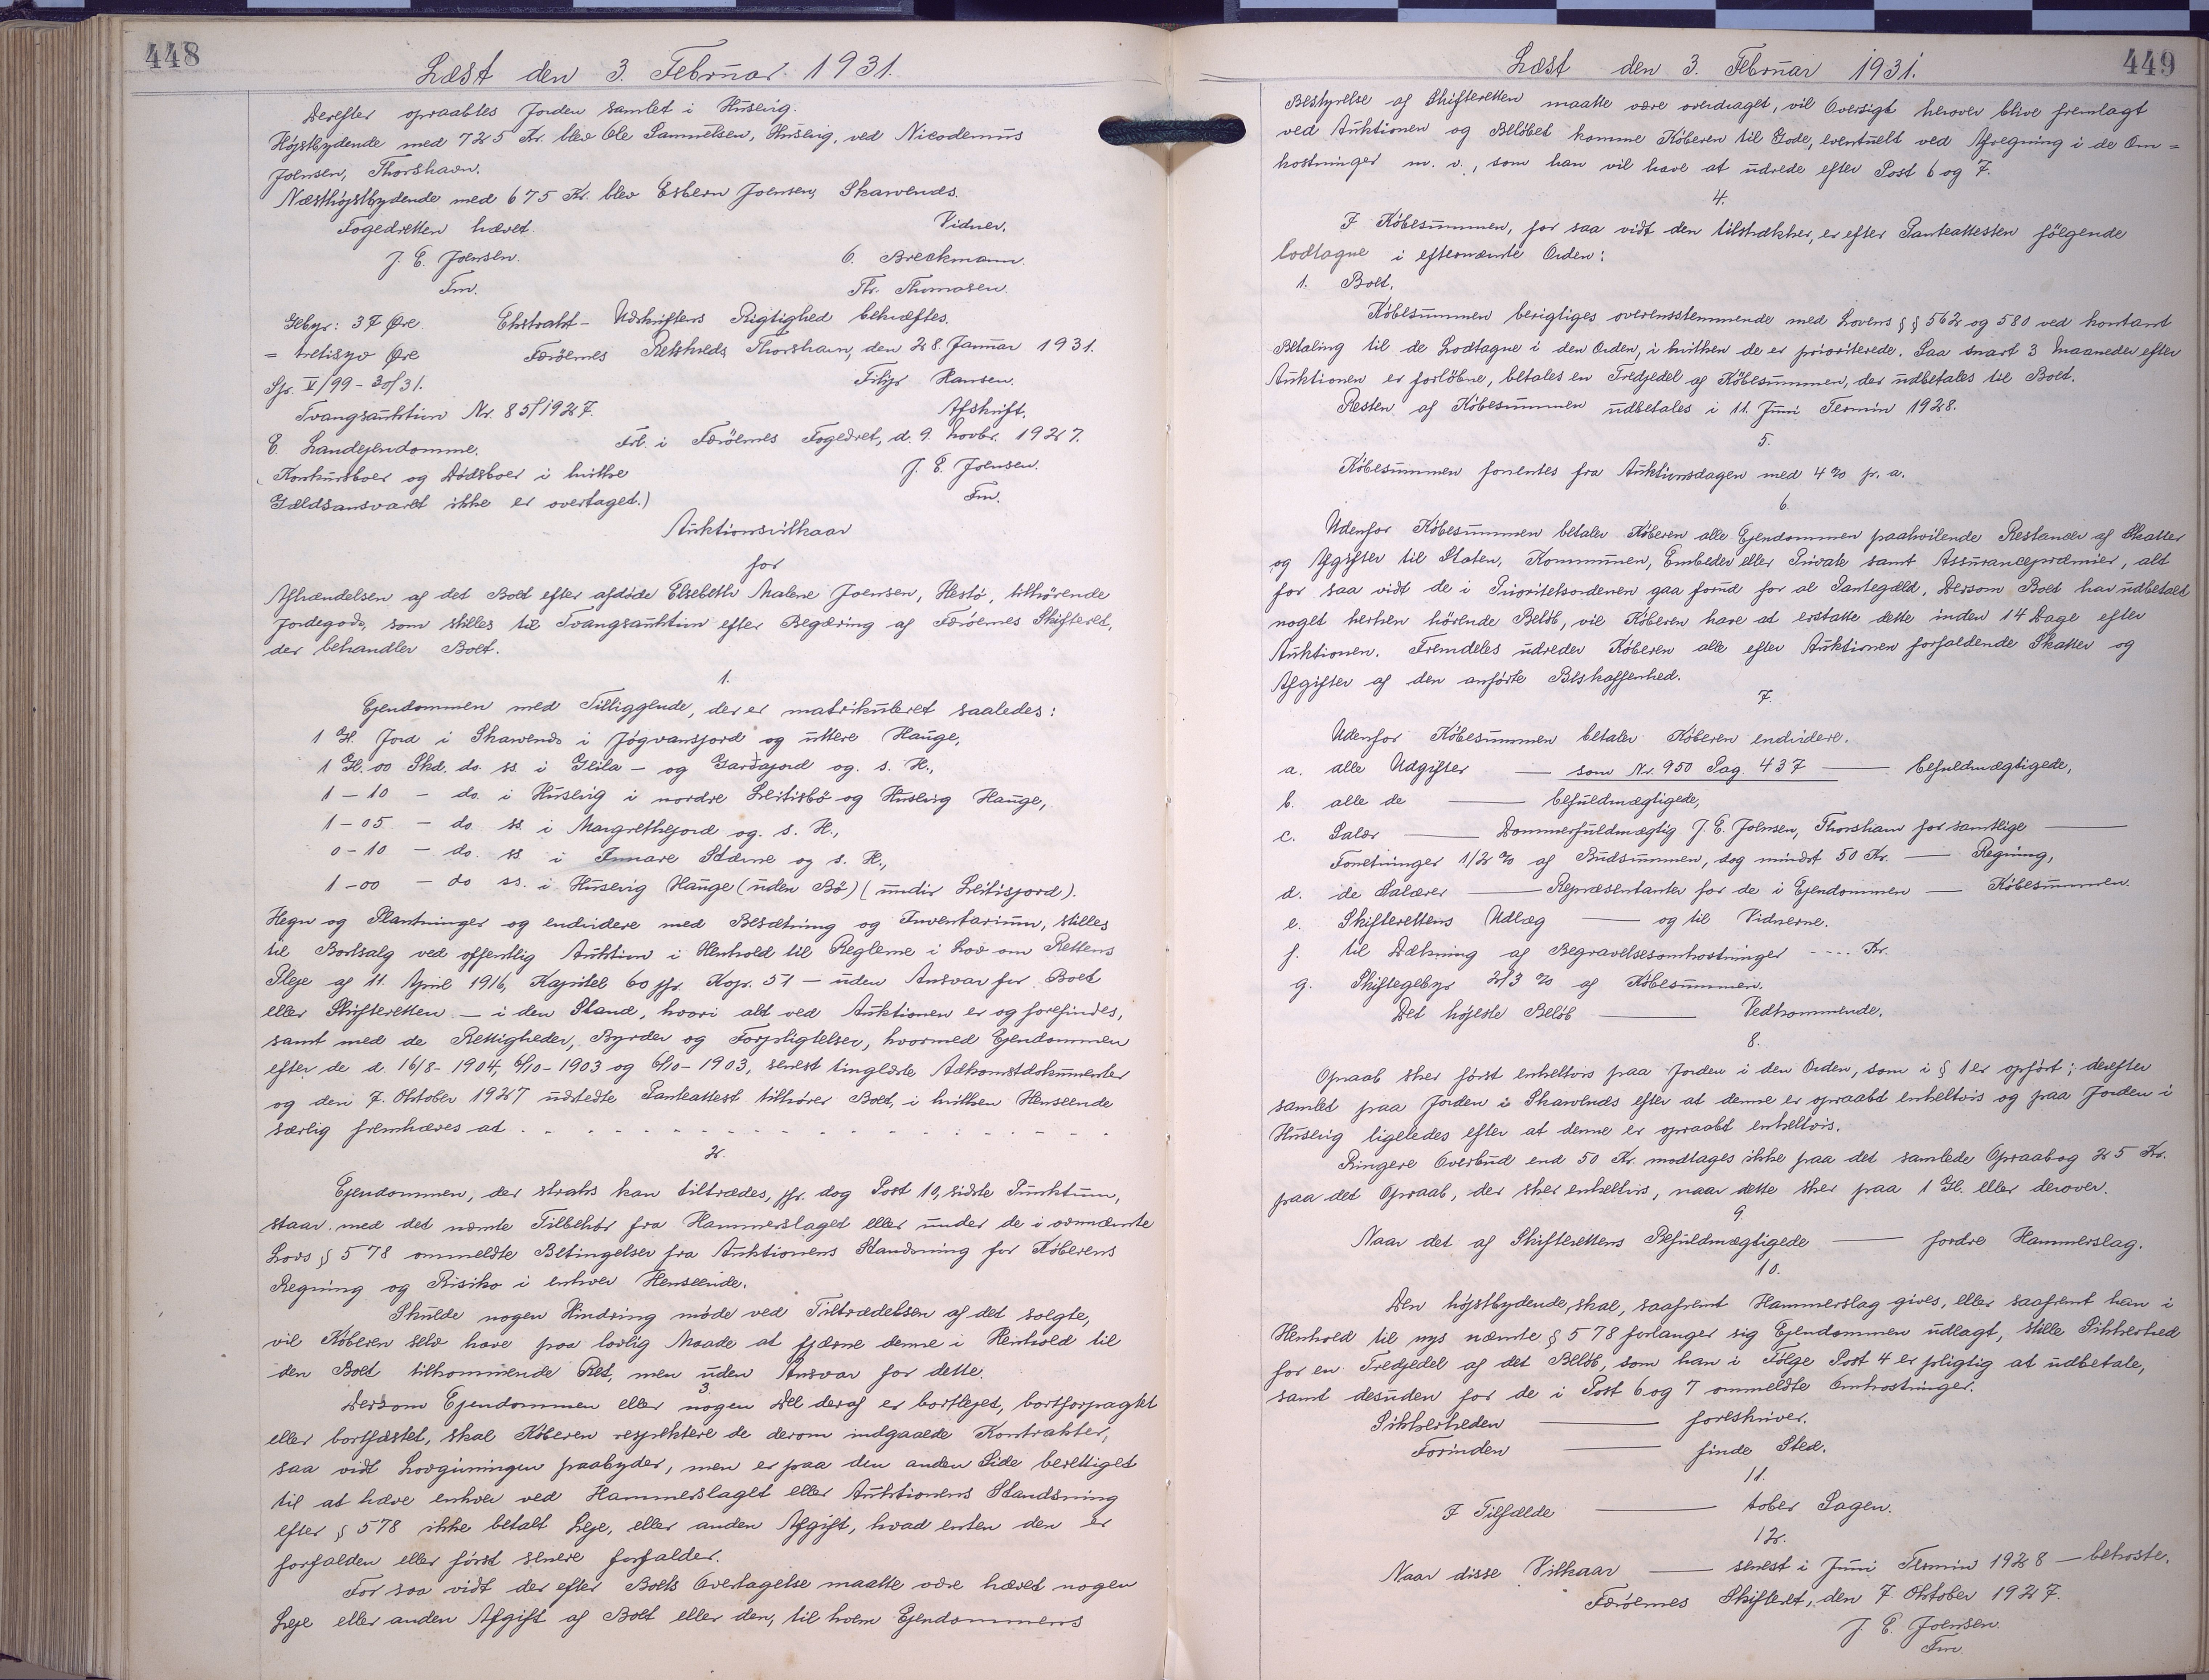 448
Læst den 3. Februar 1931.
Derefter opraabtes Jorden samlet i Husevig.
Højstbydende med 725 Kr. blev Ole Samuelsen, Husevig, ved Nicodemus
Joensen, Thorshavn.
Næsthøjstbydende med 675 Kr. blev Esbern Joensen, Skarvends.
Fogedretten hævet. Vidner.
J. E. Joensen. O. Breckmann.
Fm. Th. Thomasen.
Gebyr: 37 Øre. Ekstrakt-Udskriftens Rigtighed bekræftes.
= tretisyv Øre Færöernes Retskreds Thorshavn, den 28. Januar 1931.
Sp. V/99-30/31. Filip Hansen.
Tvangsauktion Nr. 85/1927. Afskrift.
E. Landejendomme. Frl. i Færöernes Fogedret, d. 9. Novbr. 1927.
(Konkursboer og Dödsboer i hvilke J. E. Joensen.
Gældsansvaret ikke er overtaget.) Fm.
Auktionsvilkaar
for
Afhændelsen af det Boet efter afdøde Elsebeth Malene Joensen, Hestö, tilhørende
Jordegods, som stilles til Tvangsauktion efter Begæring af Færöernes Skifteret,
der behandler Boet.
1.
Ejendommen med Tilliggende, der er matrikuleret saaledes:
1 Gl. Jord i Skarvends i Jógvansjord og uttere Hauge,
1 Gl. 00 Skd. do. ss. i Glila- og Gardajord og. s. H.,
1 - 10 - do. i Husevig i nordre Leitisbö og Husevig Hauge,
1 - 05 - do ss. i Margrethejord og. s. H.,
0 - 10 - do. ss i Innare Stærne og s. H.,
1 - 00 - do ss. i Husevig Hauge (uden Bö) (undir Leitisjord).
Hegn og Plantninger og endvidere med Besætning og Inventarium, stilles
til Bortsalg ved offentlig Auktion i Henhold til Reglerne i Lov om Rettens
Pleje af 11. April 1916, Kapitel 60 jfr. Kap. 51 - uden Ansvar for Boet
eller Skifteretten - i den Stand, hvori alt ved Auktionen er og forefindes,
samt med de Rettigheder, Byrder og Forpligtelser, hvormed Ejendommen
efter de d. 16/8-1904, 6/10-1903 og 6/10-1903, senest tinglæste Adkomstdokumenter
og den 7. Oktober 1927 udstedte Panteattest tilhører Boet, i hvilken Henseende
særlig fremhæves at . - - - - - - - - - - - - - - - - -
2.
Ejendommen, der straks kan tiltrædes, jfr. dog Post 10, sidste Punktum,
staar med det nævnte Tilbehør fra Hammerslaget eller under de i ovennævnte
Lovs § 578 ommeldte Betingelser fra Auktionens Standsning for Køberens
Regning og Risiko i enhver Henseende.
Skulde nogen Hindring møde ved Tiltrædelsen af det solgte,
vil Køberen selv have paa lovlig Maade at fjærne denne i Henhold til
den Boet tilkommende Ret, men uden Ansvar for dette.
3.
Dersom Ejendommen eller nogen Del deraf er bortlejet, bortforpagtet
eller bortfæstet, skal Køberen respektere de derom indgaaede Kontrakter,
saa vidt Lovgivningen paabyder, men er paa den anden Side berettiget
til at hæve enhver ved Hammerslaget eller Auktionens Standsning
efter § 578 ikke betalt Leje, eller anden Afgift, hvad enten den er
forfalden eller først senere forfalder.
For saa vidt der efter Boets Overtagelse maatte være hævet nogen
Leje eller anden Afgift af Boet eller den, til hvem Ejendommens
449
Læst den 3. Februar 1931.
Bestyrelse af Skifteretten maatte være overdraget, vil Oversigt herover blive fremlagt
ved Auktionen og Beløbet komme Køberen til Gode, eventuelt ved Afregning i de Om=
kostninger m. v., som han vil have at udrede efter Post 6 og 7.
4.
I Købesummen, for saa vidt den tilstrækker, er efter Panteattesten følgende
lodtagne i efternævnte Orden:
1. Boet.
Købesummen berigtiges overensstemmende med Lovens §§ 562 og 580 ved kontant
Betaling til de Lodtagne i den Orden, i hvilken de er prioriterede. Saa snart 3 Maaneder efter
Auktionen er forløbne, betales en Tredjedel af Købesummen, der udbetales til Boet.
Resten af Købesummen udbetales i 11. Juni Termin 1928.
5.
Købesummen forrentes fra Auktionsdagen med 4 % p. a.
6.
Udenfor Købesummen betaler Køberen alle Ejendommen paahvilende Restancer af Skatter
og Afgifter til Staten, Kommunen, Embeder eller Private samt Assurancepræmier, alt
for saa vidt de i Prioritetsordenen gaa forud for al Pantegæld. Dersom Boet har udbetalt
noget herhen hörende Beløb, vil Køberen have at erstatte dette inden 14 Dage efter
Auktionen. Fremdeles udreder Køberen alle efter Auktionen forfaldende Skatter og
Afgifter af den anførte Beskaffenhed.
7.
Udenfor Købesummen betaler Køberen endvidere.
a. alle Udgifter — som Nr. 950 Pag. 437 — befuldmægtigede,
b. alle de — befuldmægtigede,
c. Salær — Dommerfuldmægtig J. E. Joensen, Thorshavn for samtlige —
Forretninger 1/2 % af Budsummen, dog mindst 50 Kr. — Regning,
d. de Salærer — Repræsentanter for de i Ejendommen — Købesummen.
e. Skifterettens Udlæg — og til Vidnerne.
f. til Dækning af Begravelsesomkostninger ---- Kr.
g. Skiftegebyr 2/3 % af Købesummen.
Det højeste Beløb — Vedkommende.
8.
Opraab sker først enkeltvis paa Jorden i den Orden, som i § 1 er opført; derefter
samlet paa Jorden i Skarvends efter at denne er opraabt enkeltvis og paa Jorden i
Husevig ligeledes efter at denne er opraabt enkeltvis.
Ringere Overbud end 50 Kr. modtages ikke paa det samlede Opraab og 25 Kr.
paa det Opraab, der sker enkeltvis, naar dette sker paa 1 Gl. eller derover.
9.
Naar det af Skifterettens Befuldmægtigede — fordre Hammerslag.
10.
Den højstbydende, skal, saafremt Hammerslag gives, eller saafremt han i
Henhold til nys nævnte § 578 forlanger sig Ejendommen udlagt, stille Sikkerhed
for en Tredjedel af det Beløb, som han i Følge Post 4 er pligtig at udbetale,
samt desuden for de i Post 6 og 7 ommeldte Omkostninger.
Sikkerheden — foreskriver.
Forinden — finde Sted.
11.
I Tilfælde — taber Sagen.
12.
Naar disse Vilkaar — senest i Juni Termin 1928 — bekoste.
Færöernes Skifteret, den 7. Oktober 1927.
J. E. Joensen.
Fm.